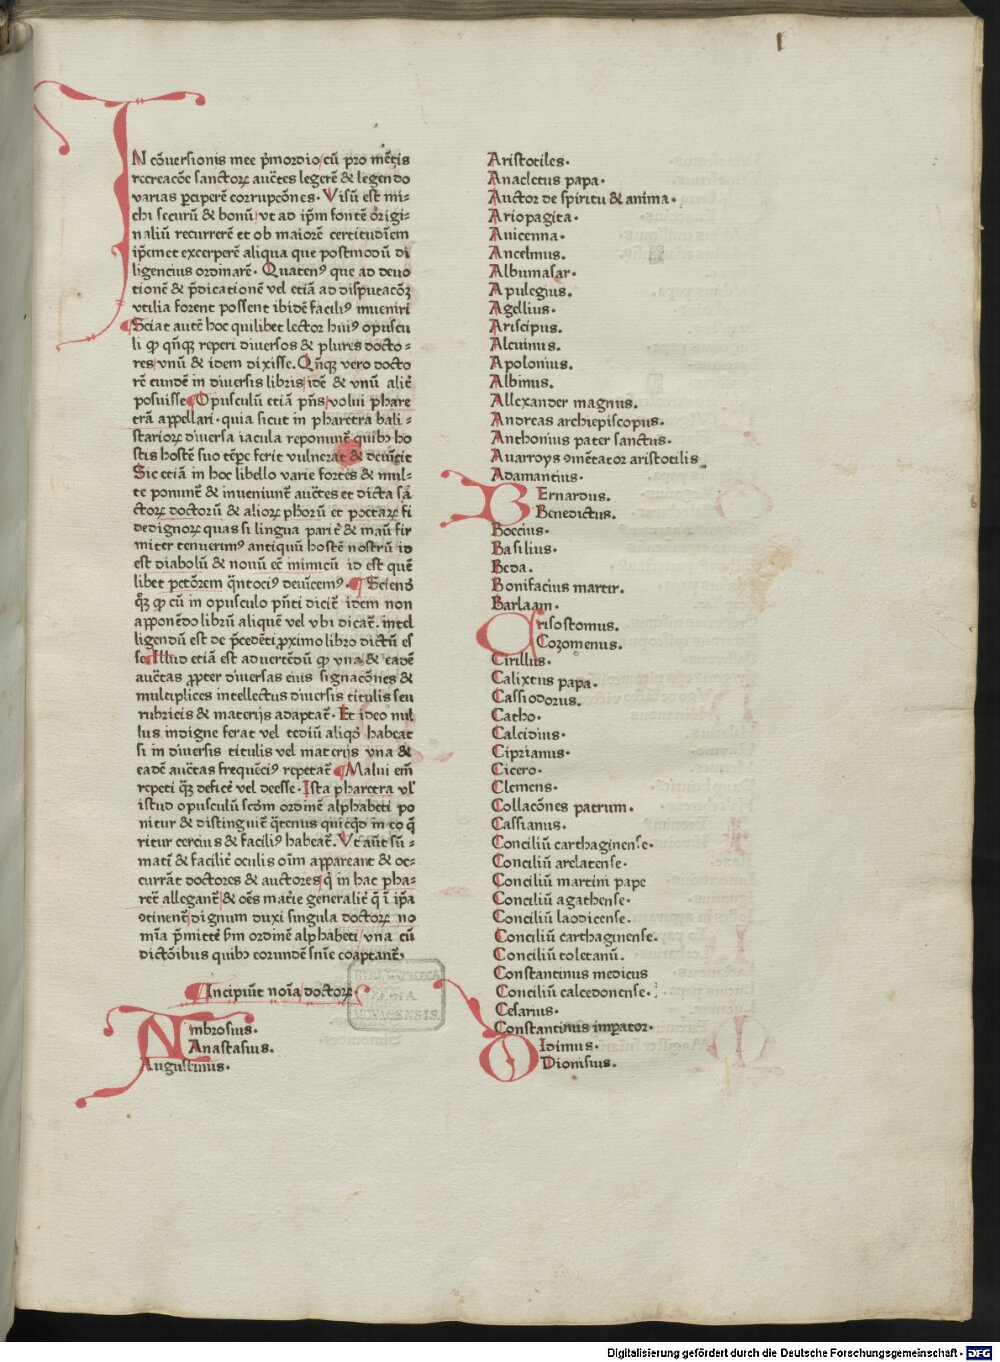 IN cōuersionis mee p̄mordio cū pro mētis
recreacōe sanctoꝝ auc̄tes legerē & legendo
varias ꝑciperē corrupcōnes. Visū est mi-
chi securū & bonū vt ad ip̄m fontē origi-
naliū recurrerē et ob maiorē certitudīem
ip̄emet excerperē aliqua que postmodū di
ligencius ordinarē. Quatenꝰ que ad deuo
tionē & p̄dicationē vel etiā ad disputacōꝫ
vtilia forent possent ibidē faciliꝰ inueniri
Sciat autē hoc quilibet lector huiꝰ opuscu
li ꝙ qn̄qꝫ reperi diuersos & plures docto-
res vnū & idem dixisse. Qn̄qꝫ vero docto
rē eundē in diuersis libris idē & vnū alit̄
posuisse Opusculū etiā pn̄s volui phare
trā appellari. quia sicut in pharetra bali-
starioꝝ diuersa iacula reponunt̄ quibꝰ ho
stis hostē suo tēpe ferit vulnerat & deuīcit
Sic etiā in hoc libello varie sortes & mul-
te ponunt̄ & inueniunt̄ auc̄tes et dicta sā
ctoꝝ doctorū & alioꝝ ph̄orū et poetaꝝ fi
dedignoꝝ quas si lingua parit̄ & manū fir
miter tenuerimꝰ antiquū hostē nostrū id
est diabolū & nouū eē inimicū id est quē
libet pctōrem q̄ntociꝰ deuīcemꝰ. Sciend
qꝫ ꝙ cū in opusculo pn̄ti dicit̄ idem non
apponēdo librū aliquē vel vbi dicat̄. intel
ligendū est de p̄cedēti ꝓximo libro dictū es
se. Illud etiā est aduertēdū ꝙ vna & eadē
auc̄tas ꝓpter diuersas eius signacōnes &
multiplices intellectus diuersis titulis seu
rubricis & materijs adaptat̄. Et ideo nul
lus indigne ferat vel tediū aliqd̄ habeat
si in diuersis titulis vel materijs vna &
eadē auc̄tas frequēciꝰ repetat̄ Malui em̄
repeti qꝫ deficē vel deesse. Ista pharetra vl̓
istud opusculū scd̄m ordinē alphabeti po
nitur & distinguit̄ q̄tenus quicqd̄ in eo q̄
ritur cercius & faciliꝰ habeat̄. Vt aūt sū-
matī & facilit̄ oculis oīm appareant & oc-
currāt doctores & auctores q̄ in hac pha-
ret̄ allegant̄ & oēs mat̄ie generalit̄ q̄ ī ip̄a
ꝯtinent̄ dignum duxi singula doctoꝝ no
mīa p̄mitte s̄m ordinē alphabeti vna cū
dictōibus quibꝰ eorundē sn̄ie coaptant̄.
Incipiūt noīa doctoꝝ
Ambrosius.
Anastasius.
Augustinus.
Aristotiles.
Anacletus papa.
Auctor de spiritu & anima.
Ariopagita.
Auicenna.
Ancelmus.
Albumasar.
Apulegius.
Agellius.
Ariscipus.
Alcuinus.
Apolonius.
Albinus.
Allexander magnus.
Andreas archiepiscopus.
Anthonius pater sanctus.
Auarroys ꝯmētator aristotilis
Adamantius.
Bernardus.
Benedictus.
Boecius.
Basilius.
Beda.
Bonifacius martir.
Barlaam.
Crisostomus.
Cozomenus.
Cirillus.
Calixtus papa.
Cassiodorus.
Catho.
Calcidius.
Ciprianus.
Cicero.
Clemens.
Collacōnes patrum.
Cassianus.
Conciliū carthaginense.
Conciliū arelatense.
Conciliū martini pape
Conciliū agathense.
Conciliū laodicense.
Conciliū carthaginense.
Conciliū toletanū.
Constantinus medicus
Conciliū calcedonense.
Cesarius.
Constantinus imꝑator.
Didimus.
Dionisius.
BIBLIOTHECA
REGIA
MONACENSIS.
Digitalisierung gefördert durch die Deutsche Forschungsgemeinschaft - DFG